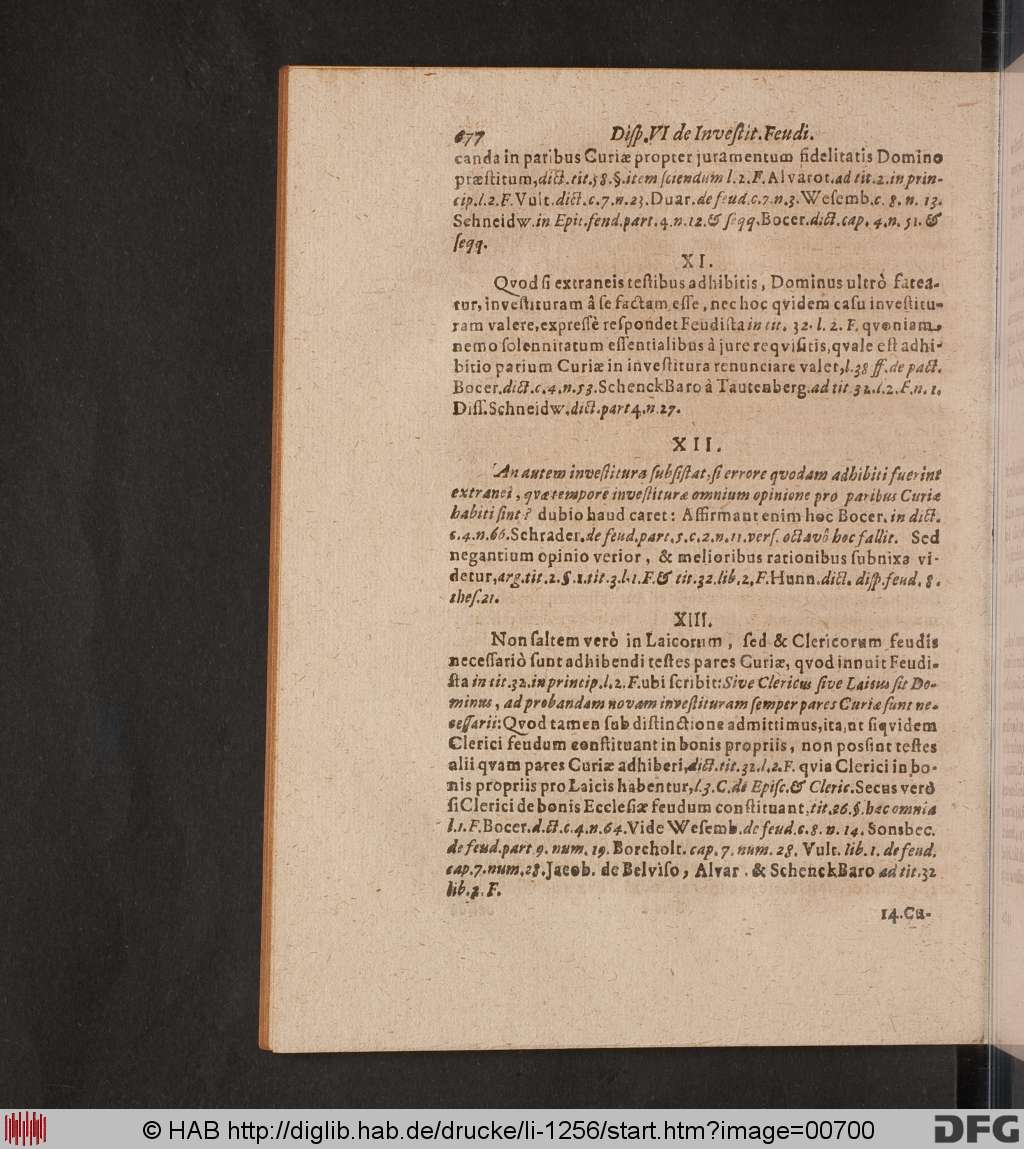 677 Diſp. VI de Inveſtit. Feudi.
canda in paribus Curiæ propter juramentum fidelitatis Domino
præſtitum, dict. tit. 58. §. item ſciendum l. 2. F. Alvarot. ad tit. 2. in prin-
cip. l. 2. F. Vult. dict. c. 7. n. 23. Duar. de feud. c. 7. n. 3. Weſemb. c. 8. n. 13.
Schneidw. in Epit. fend. part. 4. n. 12. & ſeqq. Bocer. dict. cap. 4. n. 51. &
ſeqq.
XI.
Qvod ſi extraneis teſtibus adhibitis, Dominus ultrò fatea-
tur, inveſtituram â ſe factam eſſe, nec hoc qvidem caſu inveſtitu-
ram valere, expreſſè reſpondet Feudiſta in tit. 32. l. 2. F. qvoniam
nemo ſolennitatum eſſentialibus à jure reqviſitis, qvale eſt adhi-
bitio parium Curiæ in inveſtitura renunciare valet, l. 38 ff. de pact.
Bocer. dict. c. 4. n. 53. Schenck Baro à Tautenberg. ad tit. 32. l. 2. F. n. 1.
Diſſ. Schneidw. dict. part 4. n. 27.
XII.
An autem inveſtitura ſubſiſtat, ſi errore qvodam adhibiti fuerint
extranei, qvæ tempore inveſtituræ omnium opinione pro paribus Curiæ
habiti ſint? dubio haud caret: Affirmant enim hoc Bocer. in dict.
c. 4. n. 66. Schrader. de feud. part. 5. c. 2. n. 11. verſ. octavò hoc fallit. Sed
negantium opinio verior, & melioribus rationibus ſubnixa vi-
detur, arg. tit. 2. §. 1. tit. 3. l. 1. F. & tit. 32. lib. 2. F. Hunn. dict. diſp. feud. 8.
theſ. 21.
XIII.
Non ſaltem verò in Laicorum, ſed & Clericorum feudis
neceſſariò ſunt adhibendi teſtes pares Curiæ, qvod innuit Feudi-
ſta in tit. 32. in princip. l. 2. F. ubi ſcribit: Sive Clericus ſive Laicus ſit Do-
minus, ad probandam novam inveſtituram ſemper pares Curiæ ſunt ne-
ceſſarii: Qvod tamen ſub diſtinctione admittimus, ita, ut ſiqvidem
Clerici feudum conſtituant in bonis propriis, non posſint teſtes
alii qvam pares Curiæ adhiberi, dict. tit. 32. l. 2. F. qvia Clerici in bo-
nis propriis pro Laicis habentur, l. 3. C. de Epiſc. & Cleric. Secus verò
ſi Clerici de bonis Eccleſiæ feudum conſtituant. tit. 26. §. hæc omnia
l. 1. F. Bocer. d. ct. c. 4. n. 64. Vide Weſemb. de feud. c. 8. n. 14. Sonsbec.
de feud. part 9. num. 19. Borcholt. cap. 7. num. 28. Vult. lib. 1. de feud.
cap. 7. num. 28. Jacob. de Belviſo, Alvar. & Schenck Baro ad tit. 32
lib. 2. F.
14. Cu-
© HAB http://diglib.hab.de/drucke/li-1256/start.htm?image=00700
DFG